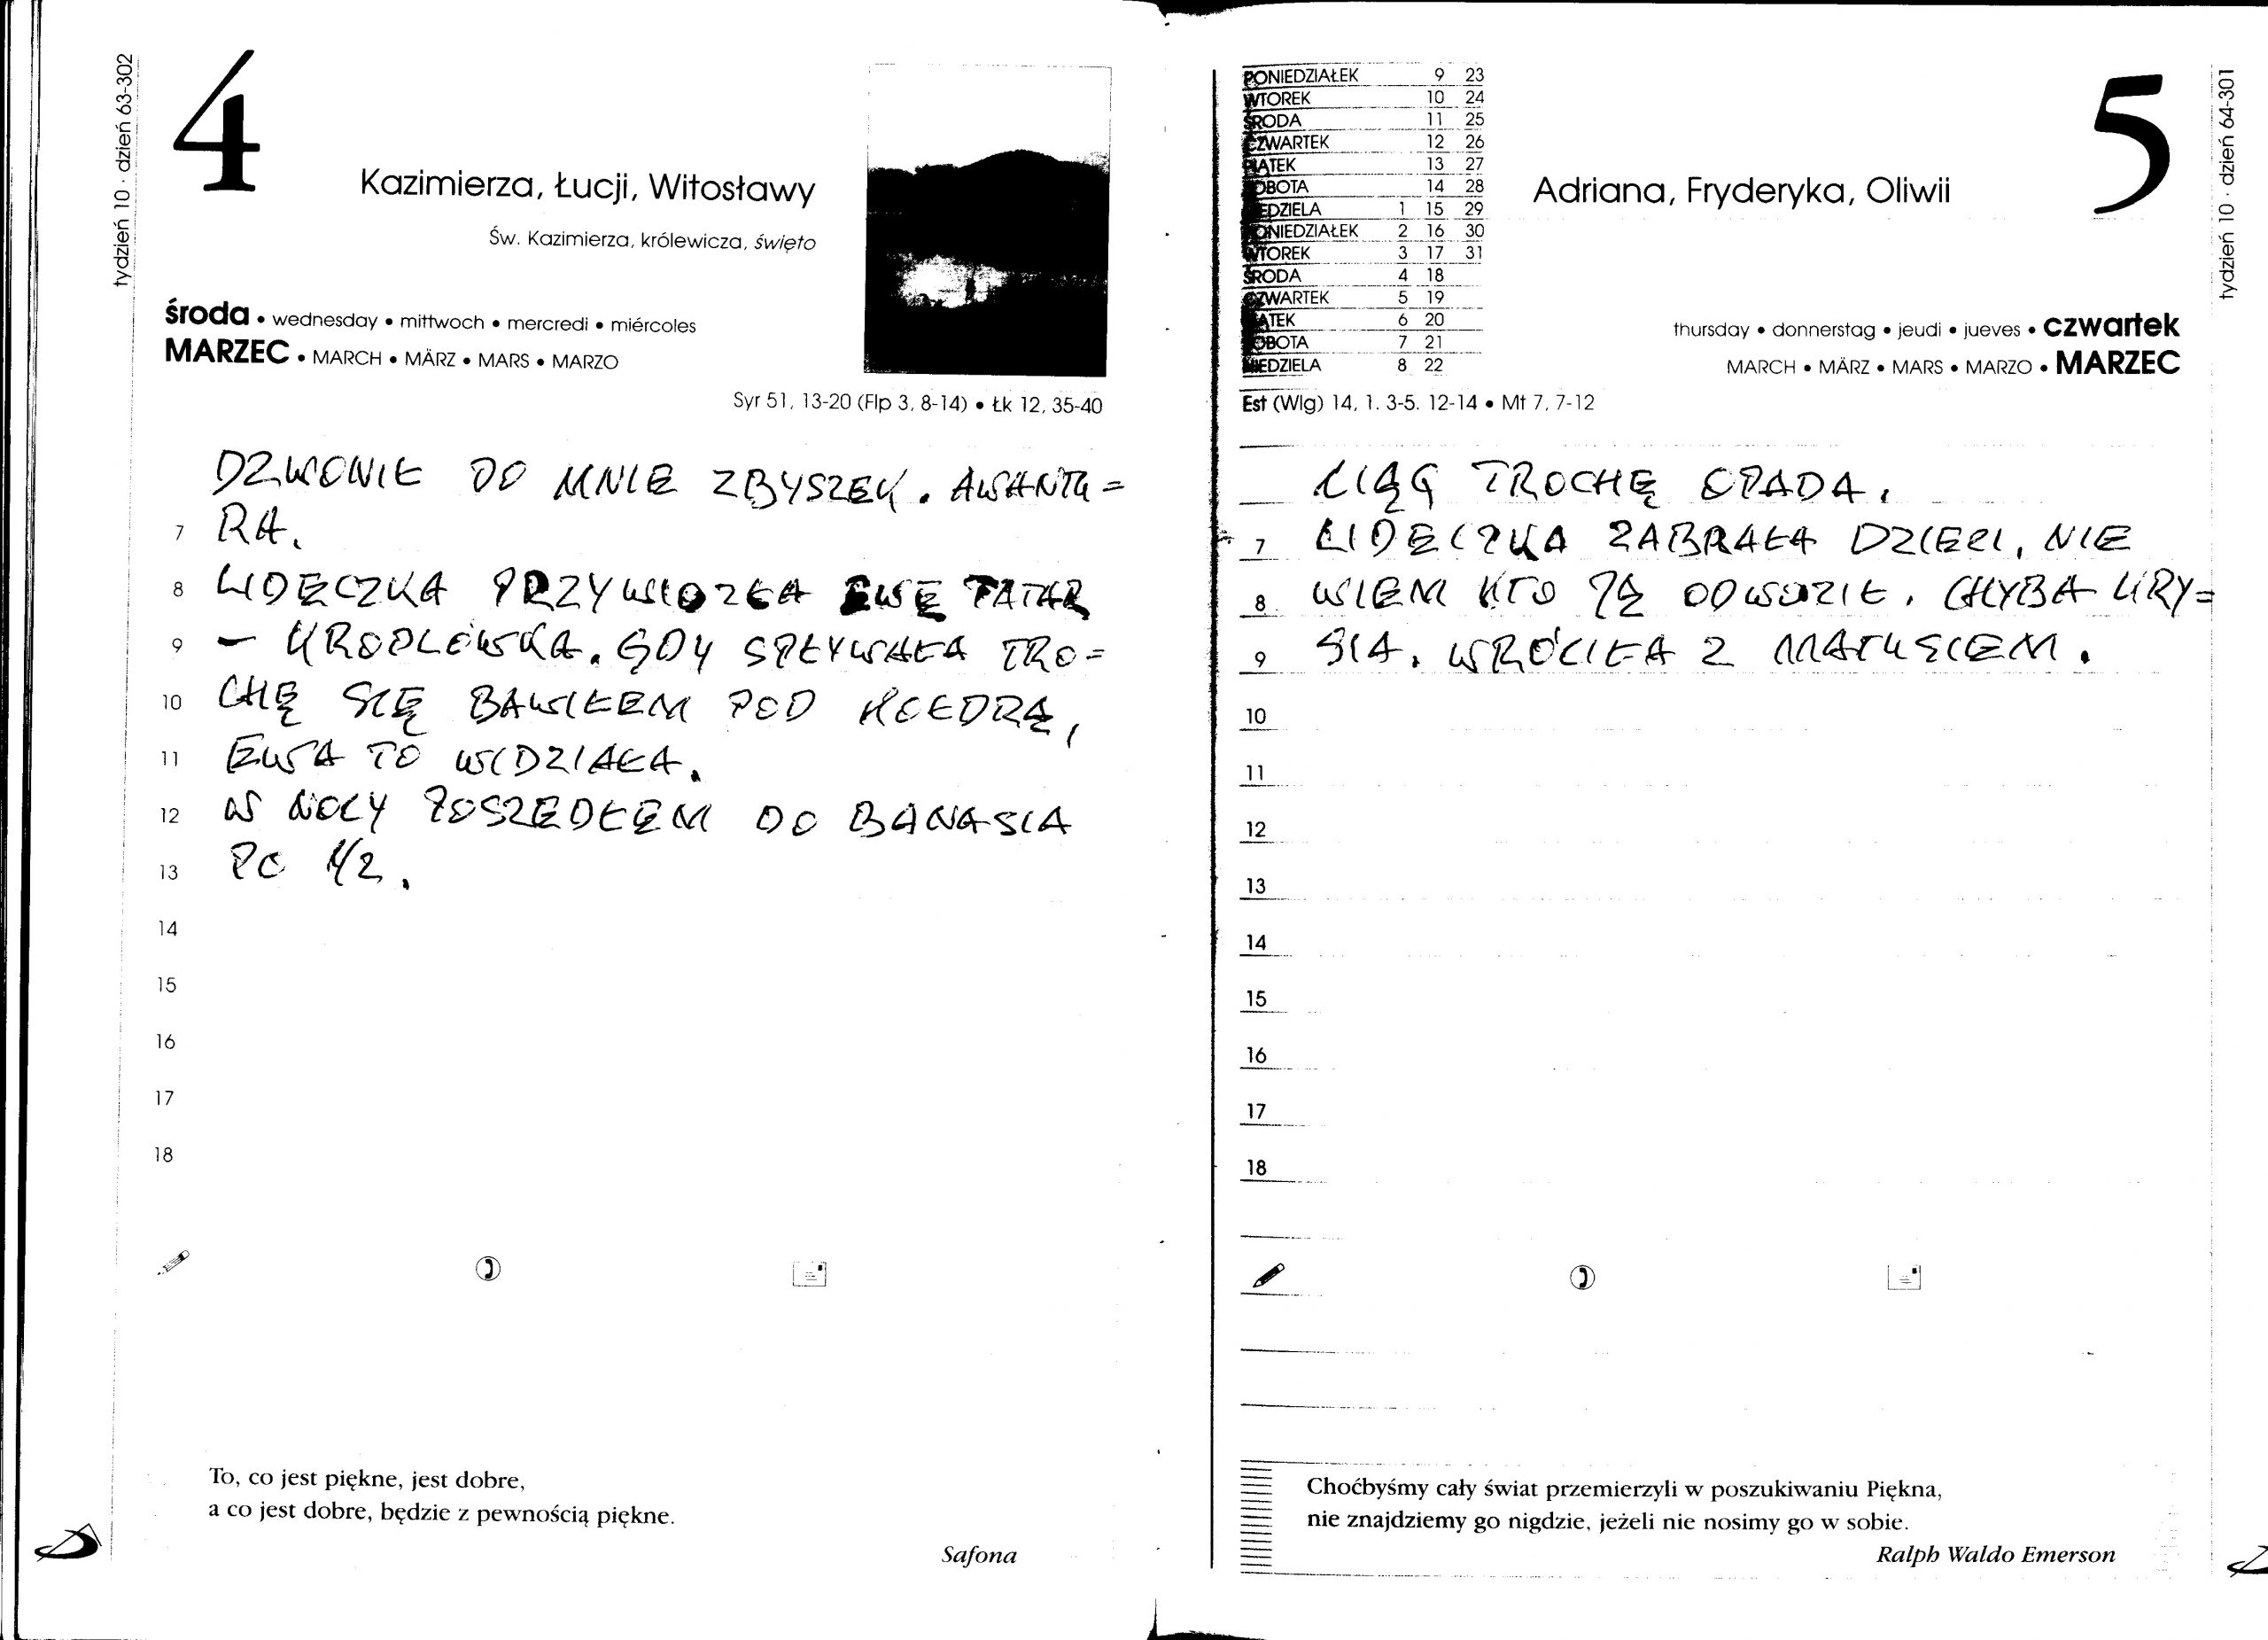 tydzień 10 · dzień 63-302
4
Kazimierza, Łucji, Witosławy
Św. Kazimierza, królewicza, święto
środa • wednesday • mittwoch • mercredi • miércoles
MARZEC • MARCH • MÄRZ • MARS • MARZO
Syr 51, 13-20 (Flp 3, 8-14) • Łk 12, 35-40
DZWONIŁ DO MNIE ZBYSZEK. AWANTU=
7 RA.
8 LIDECZKA PRZYWIOZŁA EWĘ TATAR
9 — KRODLEWSKA. GDY SPŁYWAŁA TRO=
10 CHĘ SIĘ BAWIŁEM POD KOŁDRĄ,
11 EWA TO WIDZIAŁA.
12 W NOCY POSZEDŁEM DO BANASIA
13 PO 1/2.
14
15
16
17
18
To, co jest piękne, jest dobre,
a co jest dobre, będzie z pewnością piękne.
Safona
PONIEDZIAŁEK 9 23
WTOREK 10 24
ŚRODA 11 25
CZWARTEK 12 26
PIĄTEK 13 27
SOBOTA 14 28
NIEDZIELA 1 15 29
PONIEDZIAŁEK 2 16 30
WTOREK 3 17 31
ŚRODA 4 18
CZWARTEK 5 19
PIĄTEK 6 20
SOBOTA 7 21
NIEDZIELA 8 22
Adriana, Fryderyka, Oliwii
5
tydzień 10 · dzień 64-301
thursday • donnerstag • jeudi • jueves • czwartek
MARCH • MÄRZ • MARS • MARZO • MARZEC
Est (Wlg) 14, 1. 3-5. 12-14 • Mt 7, 7-12
CIĄG TROCHĘ OPADA.
7 LIDECZKA ZABRAŁA DZIECI, NIE
8 WIEM KTO JĄ ODWOZIŁ. CHYBA KRY=
9 SIA. WRÓCIŁA Z MATUSIEM.
10
11
12
13
14
15
16
17
18
Choćbyśmy cały świat przemierzyli w poszukiwaniu Piękna,
nie znajdziemy go nigdzie, jeżeli nie nosimy go w sobie.
Ralph Waldo Emerson